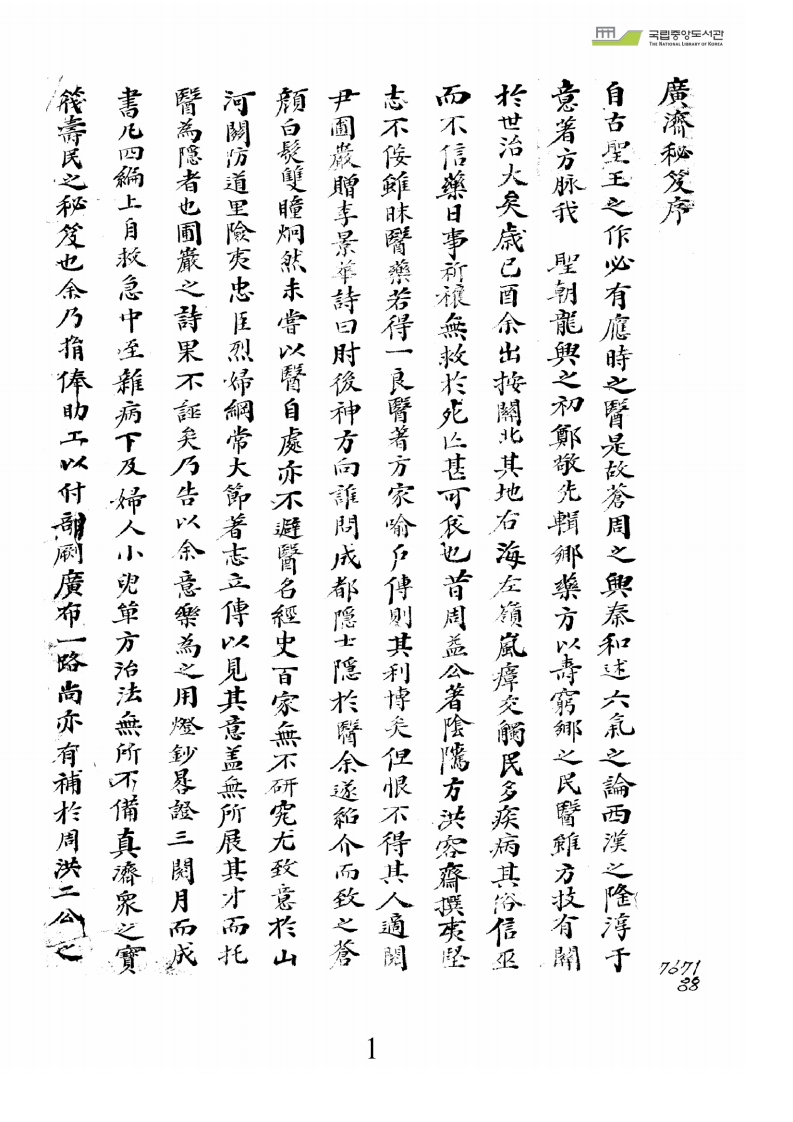 국립중앙도서관
THE NATIONAL LIBRARY OF KOREA
廣濟秘笈序
自古聖王之作必有應時之醫是故蒼周之興秦和述六氣之論西漢之隆淳于
意著方脉我 聖朝龍興之初鄭敬先輯鄉藥方以壽窮鄉之民醫雖方技有關
於世治大矣歲己酉余出按關北其地右海左嶺嵐瘴交觸民多疾病其俗信巫
而不信藥日事祈禳無救於死亡甚可哀也昔周益公著陰隲方洪容齋撰夷堅
志不佞雖昧醫藥若得一良醫著方家喻戶傳則其利博矣但恨不得其人適閱
尹圃巖贈李景華詩曰肘後神方向誰問成都隱士隱於醫余遂紹介而致之蒼
顏白髮雙瞳炯然未嘗以醫自處亦不避醫名經史百家無不研究尤致意於山
河關防道里險夷忠臣烈婦綱常大節著志立傳以見其意盖無所展其才而托
醫為隱者也圃巖之詩果不誣矣乃告以余意樂為之用燈鈔晷證三閱月而成
書凡四編上自救急中至雜病下及婦人小兒單方治法無所不備真濟衆之寶
筏壽民之秘笈也余乃捐俸助工以付剞劂廣布一路尚亦有補於周洪二公之
7671
38
1